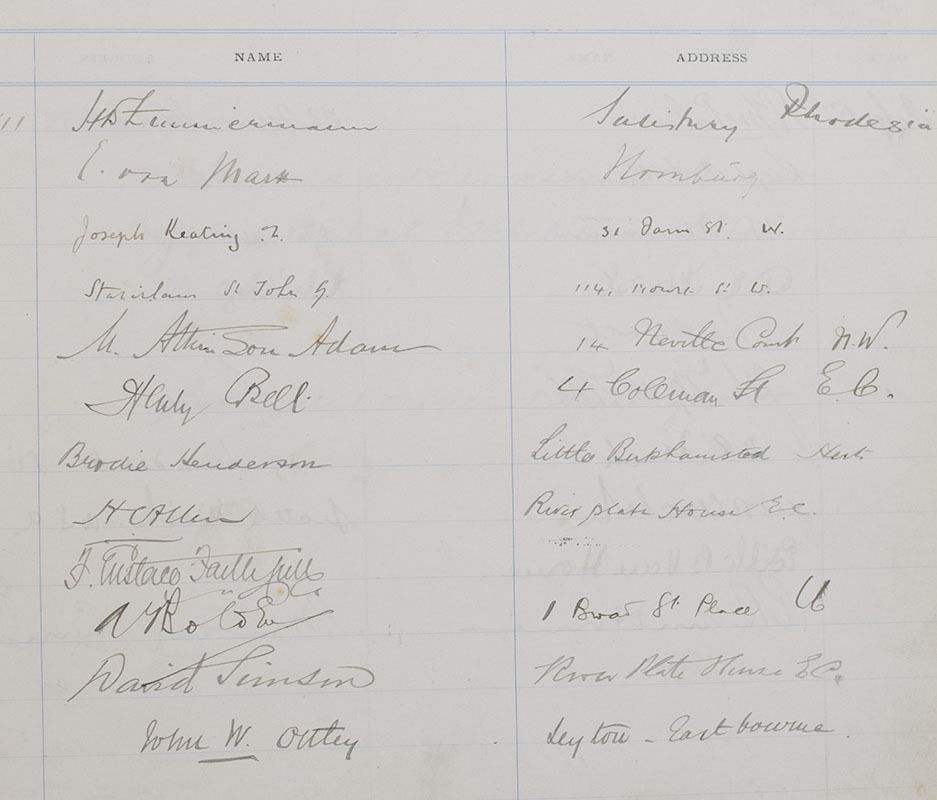 NAME ADDRESS
Zimmermann Salisbury Rhodesia
E. von Marx Homburg
Joseph Keating 31 Farm St. W.
Stanislaus St John 114, Mount St W.
M. Atkinson Adam 14 Neville Court N.W.
Henry Bell 4 Coleman St E.C.
Brodie Henderson Little Berkhamsted Herts
H C Allen River Plate House E.C.
F. Eustace Faithfull
1 Broad St Place
David Simson River Plate House E.C.
John W. Ottley Leyton - Eastbourne.